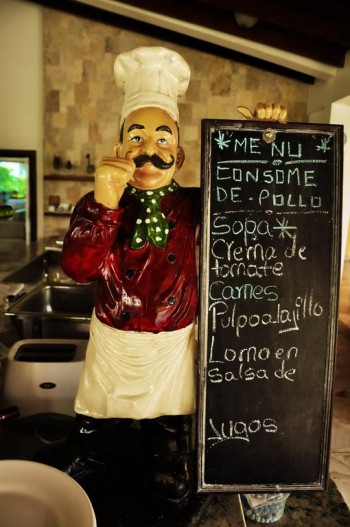 *MENU*
CONSOME
DE. POLLO
Sopa*
Crema de
tomate
Carnes
Pulpo alajillo
Lomo en
salsa de
Jugos